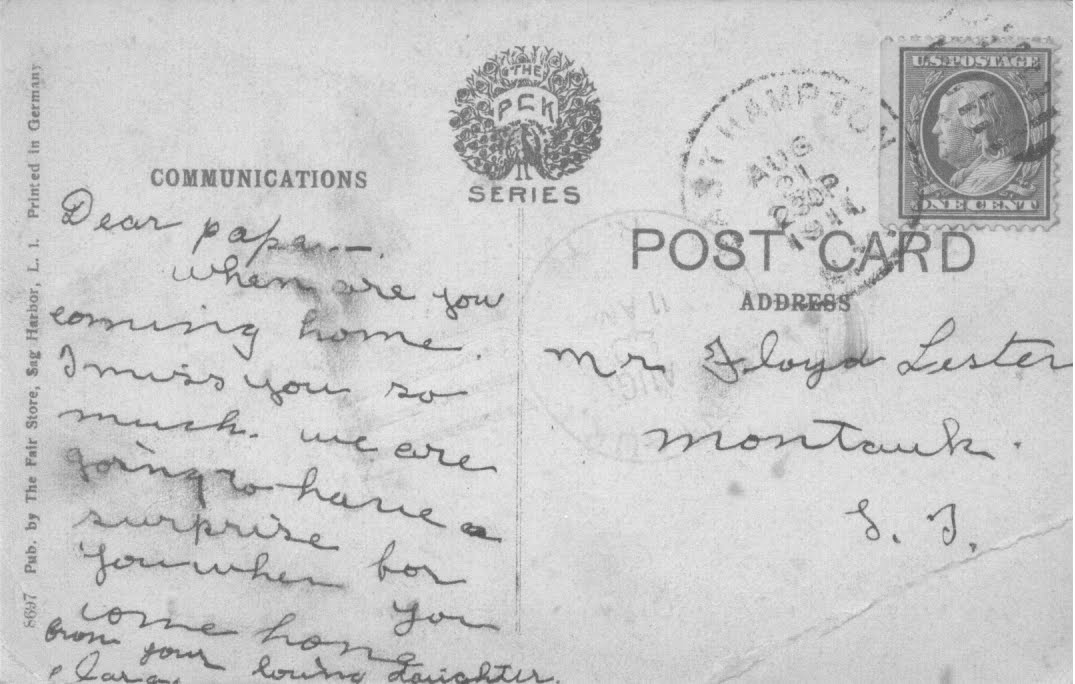 8697 Pub. by The Fair Store, Sag Harbor, L. I. Printed in Germany
COMMUNICATIONS
THE
PCK
SERIES
EAST HAMPTON
AUG
U.S. POSTAGE
ONE CENT
POST CARD
ADDRESS
11 AM
AUG
Dear papa.—
when are you
coming home.
I miss you so
much. we are
going to have a
surprise for
you when you
come home
from your loving daughter.
Clara
Mr Floyd Lester
Montauk.
L. I.